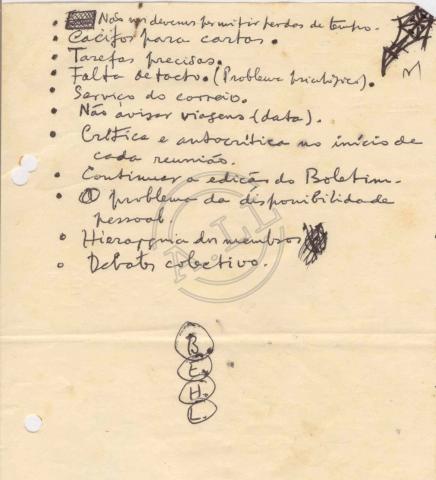 • Não nos devemos permitir perdas de tempo.
• Cacifos para cartas.
• Tarefas precisas.
• Falta de tacto. (Problema psicológico).
• Serviço do correio.
• Não avisar viagens (data).
• Crítica e autocrítica no início de
cada reunião.
• Continuar a edição do Boletim.
• O problema da disponibilidade
pessoal.
• Hierarquia dos membros
• Debates colectivo.
B.
E.
H.
L.